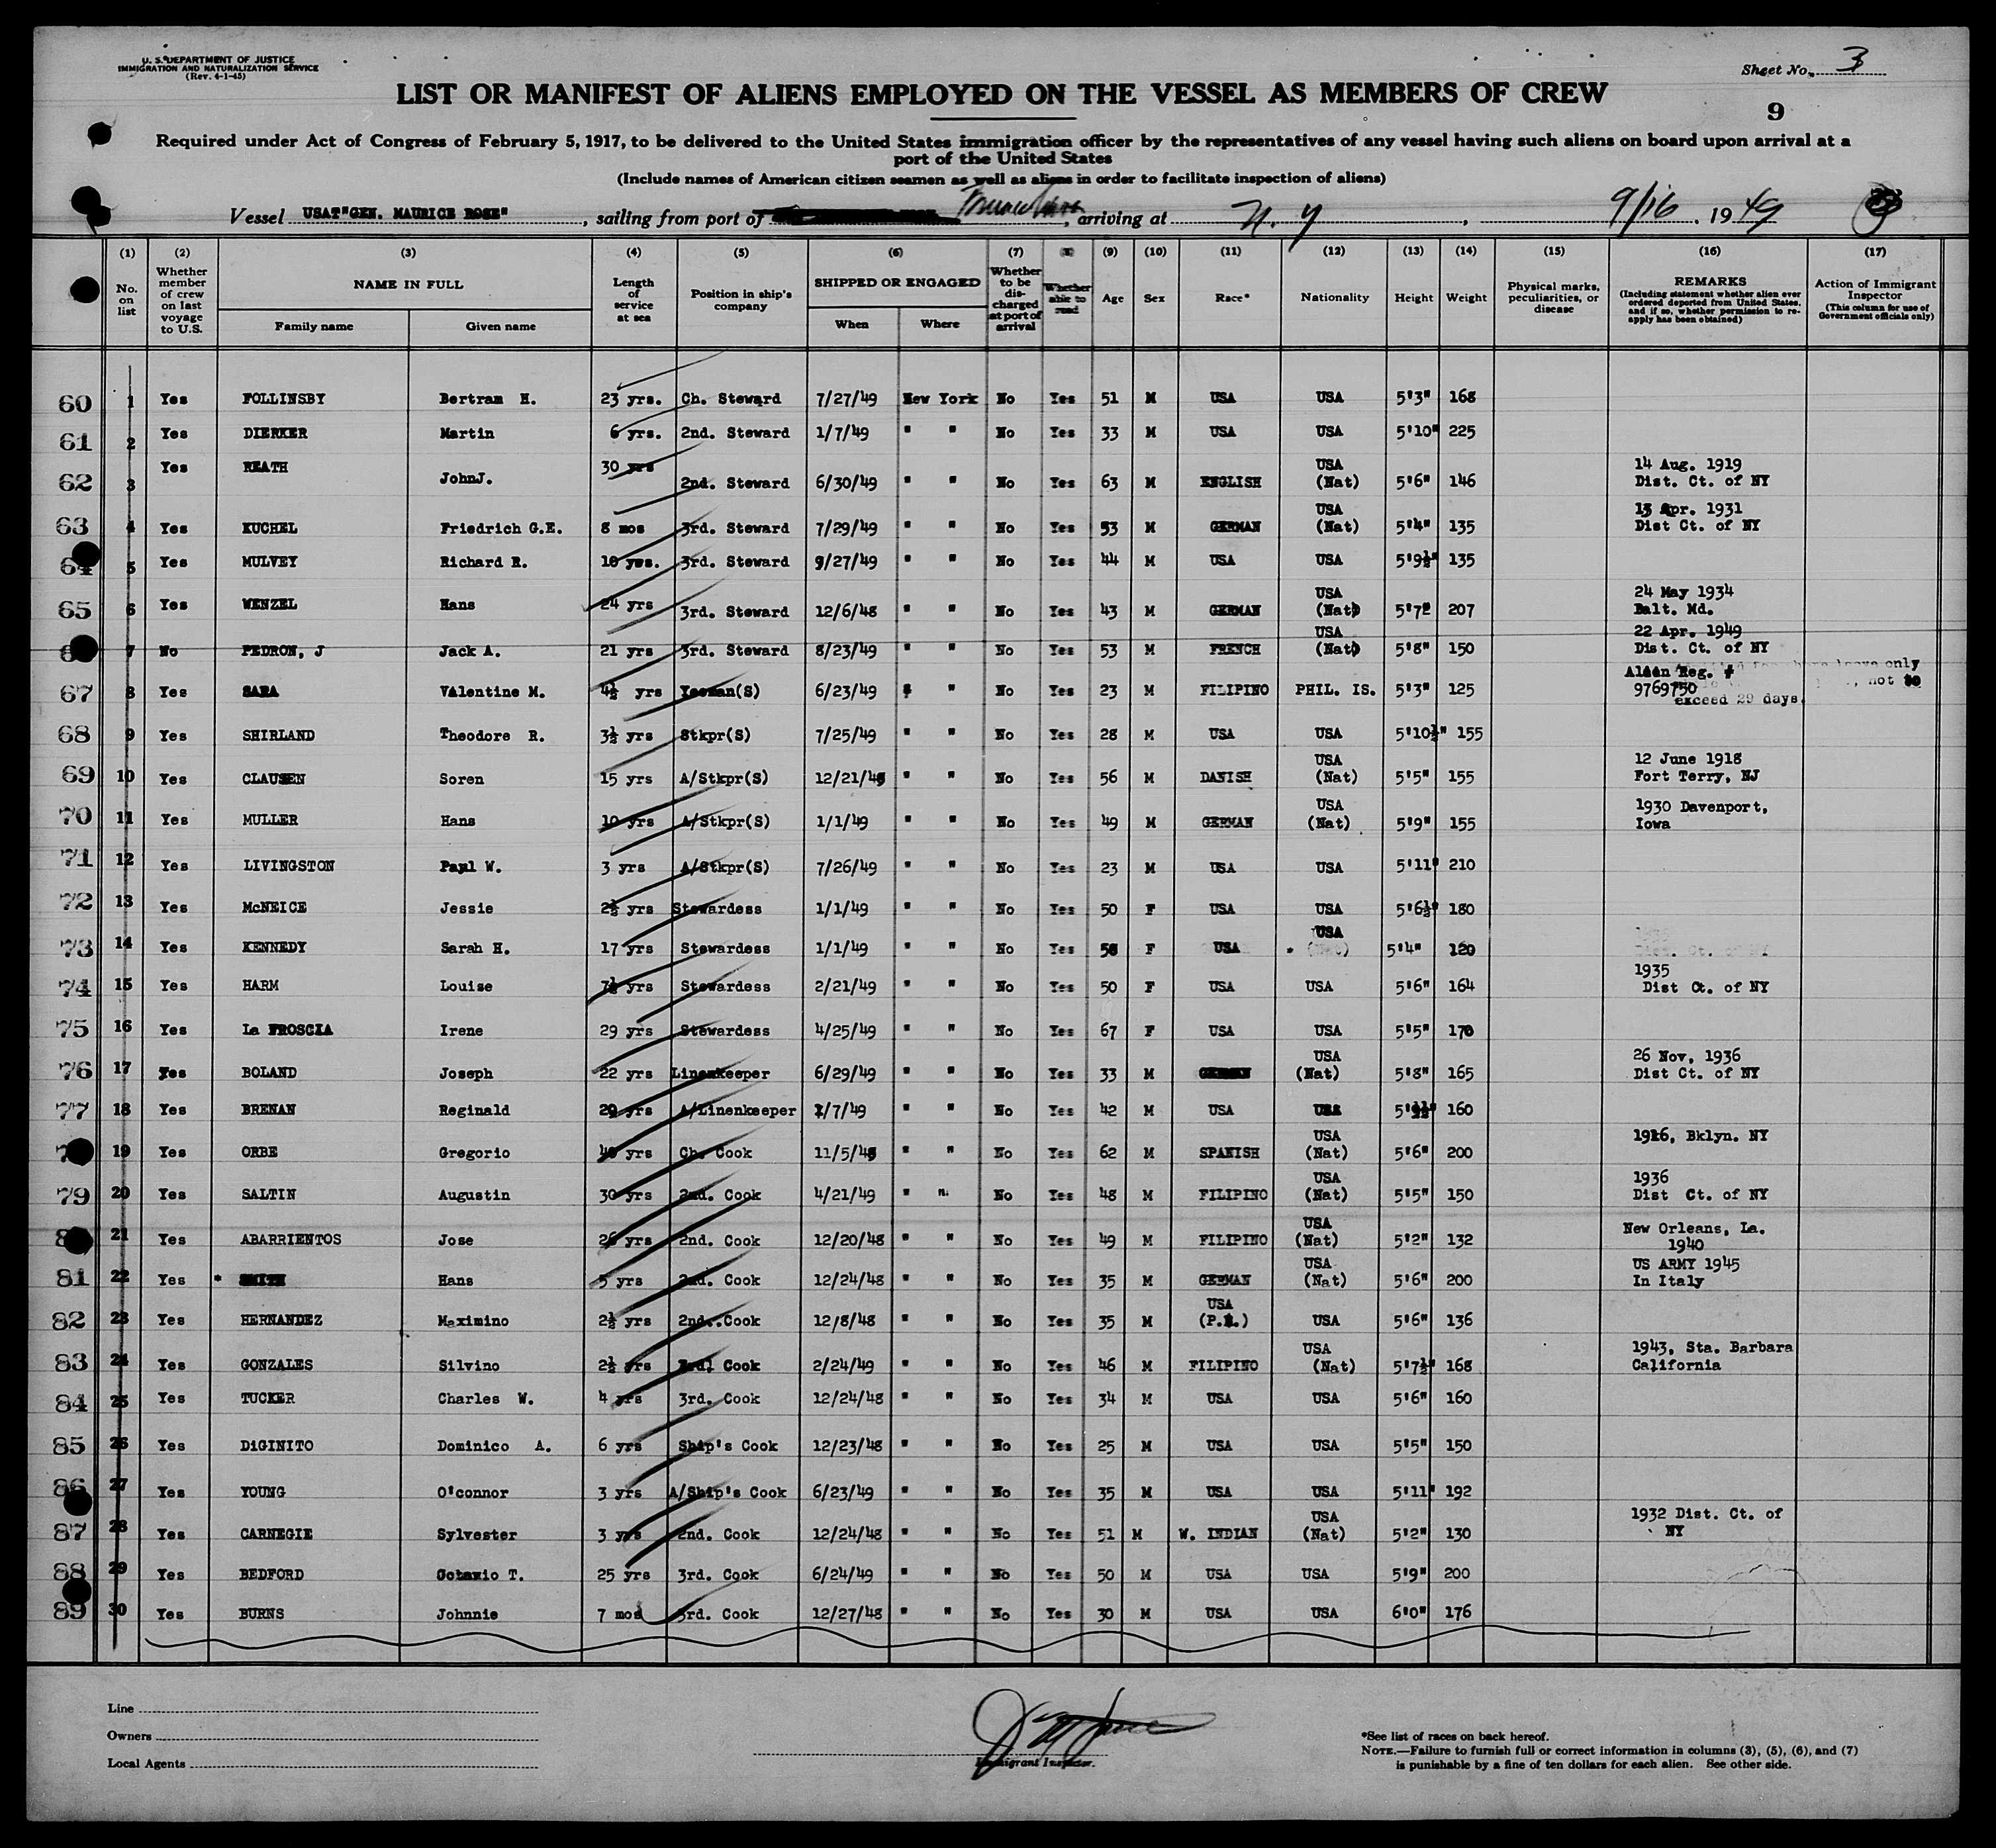 U. S. DEPARTMENT OF JUSTICE
IMMIGRATION AND NATURALIZATION SERVICE
(Rev. 4-1-45)
Sheet No. 3
LIST OR MANIFEST OF ALIENS EMPLOYED ON THE VESSEL AS MEMBERS OF CREW
9
Required under Act of Congress of February 5, 1917, to be delivered to the United States immigration officer by the representatives of any vessel having such aliens on board upon arrival at a
port of the United States
(Include names of American citizen seamen as well as aliens in order to facilitate inspection of aliens)
Vessel USAT"GEN. MAURICE ROSE", sailing from port of , arriving at N. Y, 9/16, 1949
(1) (2) (3) (4) (5) (6) (7) (8) (9) (10) (11) (12) (13) (14) (15) (16) (17)
No. on list Whether member of crew on last voyage to U.S. NAME IN FULL Family name Given name Length of service at sea Position in ship's company SHIPPED OR ENGAGED When Where Whether to be discharged at port of arrival Whether able to read Age Sex Race* Nationality Height Weight Physical marks, peculiarities, or disease REMARKS (Including statement whether alien ever ordered deported from United States, and if so, whether permission to reapply has been obtained) Action of Immigrant Inspector (This column for use of Government officials only)
60 1 Yes FOLLINSBY Bertram H. 23 yrs. Ch. Steward 7/27/49 New York No Yes 51 M USA USA 5'3" 168
61 2 Yes DIERKER Martin 6 yrs. 2nd. Steward 1/7/49 " " No Yes 33 M USA USA 5'10" 225
62 3 Yes REATH JohnJ. 30 yrs 2nd. Steward 6/30/49 " " No Yes 63 M ENGLISH USA (Nat) 5'6" 146 14 Aug. 1919 Dist. Ct. of NY
63 4 Yes KUCHEL Friedrich G.E. 8 mos 3rd. Steward 7/29/49 " " No Yes 53 M GERMAN USA (Nat) 5'4" 135 13 Apr. 1931 Dist Ct. of NY
64 5 Yes MULVEY Richard R. 10 yrs. 3rd. Steward 9/27/49 " " No Yes 44 M USA USA 5'9½" 135
65 6 Yes WENZEL Hans 24 yrs 3rd. Steward 12/6/48 " " No Yes 43 M GERMAN USA (Nat) 5'7" 207 24 May 1934 Balt. Md.
7 No PEDRON, J Jack A. 21 yrs 3rd. Steward 8/23/49 " " No Yes 53 M FRENCH USA (Nat) 5'8" 150 22 Apr. 1949 Dist. Ct. of NY
67 8 Yes SARA Valentine M. 4½ yrs Yeoman(S) 6/23/49 " " No Yes 23 M FILIPINO PHIL. IS. 5'3" 125 Alien Reg. # 9769750 leave only , not to exceed 29 days.
68 9 Yes SHIRLAND Theodore R. 3½ yrs Stkpr(S) 7/25/49 " " No Yes 28 M USA USA 5'10½" 155
69 10 Yes CLAUSEN Soren 15 yrs A/Stkpr(S) 12/21/48 " " No Yes 56 M DANISH USA (Nat) 5'5" 155 12 June 1918 Fort Terry, NJ
70 11 Yes MULLER Hans 10 yrs A/Stkpr(S) 1/1/49 " " No Yes 49 M GERMAN USA (Nat) 5'9" 155 1930 Davenport, Iowa
71 12 Yes LIVINGSTON Paul W. 3 yrs A/Stkpr(S) 7/26/49 " " No Yes 23 M USA USA 5'11" 210
72 13 Yes McNEICE Jessie 2½ yrs Stewardess 1/1/49 " " No Yes 50 F USA USA 5'6½" 180
73 14 Yes KENNEDY Sarah H. 17 yrs Stewardess 1/1/49 " " No Yes 58 F USA USA 5'4" 120
74 15 Yes HARM Louise 7½ yrs Stewardess 2/21/49 " " No Yes 50 F USA USA 5'6" 164 1935 Dist Ct. of NY
75 16 Yes La FROSCIA Irene 29 yrs Stewardess 4/25/49 " " No Yes 67 F USA USA 5'5" 170
76 17 Yes BOLAND Joseph 22 yrs Linenkeeper 6/29/49 " " No Yes 33 M GERMAN USA (Nat) 5'8" 165 26 Nov, 1936 Dist Ct. of NY
77 18 Yes BRENAN Reginald 20 yrs A/Linenkeeper 1/7/49 " " No Yes 42 M USA USA 160
19 Yes ORBE Gregorio 40 yrs Ch. Cook 11/5/48 " " No Yes 62 M SPANISH USA (Nat) 5'6" 200 1926, Bklyn. NY
79 20 Yes SALTIN Augustin 30 yrs 2nd. Cook 4/21/49 " " No Yes 48 M FILIPINO USA (Nat) 5'5" 150 1936 Dist Ct. of NY
21 Yes ABARRIENTOS Jose 26 yrs 2nd. Cook 12/20/48 " " No Yes 49 M FILIPINO USA (Nat) 5'2" 132 New Orleans, La. 1940
81 22 Yes * SMITH Hans 5 yrs 2nd. Cook 12/24/48 " " No Yes 35 M GERMAN USA (Nat) 5'6" 200 US ARMY 1945 In Italy
82 23 Yes HERNANDEZ Maximino 2½ yrs 2nd. Cook 12/8/48 " " No Yes 35 M USA (P.R.) USA 5'6" 136
83 24 Yes GONZALES Silvino 2½ yrs 3rd. Cook 2/24/49 " " No Yes 46 M FILIPINO USA (Nat) 5'7½" 168 1943, Sta. Barbara California
84 25 Yes TUCKER Charles W. 4 yrs 3rd. Cook 12/24/48 " " No Yes 34 M USA USA 5'6" 160
85 26 Yes DiGINITO Dominico A. 6 yrs Ship's Cook 12/23/48 " " No Yes 25 M USA USA 5'5" 150
86 27 Yes YOUNG O'connor 3 yrs A/Ship's Cook 6/23/49 " " No Yes 35 M USA USA 5'11" 192
87 28 Yes CARNEGIE Sylvester 3 yrs 2nd. Cook 12/24/48 " " No Yes 51 M W. INDIAN USA (Nat) 5'2" 130 1932 Dist. Ct. of NY
88 29 Yes BEDFORD T. 25 yrs 3rd. Cook 6/24/49 " " No Yes 50 M USA USA 5'9" 200
89 30 Yes BURNS Johnnie 7 mos 3rd. Cook 12/27/48 " " No Yes 30 M USA USA 6'0" 176
Line
Owners
Local Agents
Immigrant Inspector.
*See list of races on back hereof.
NOTE.—Failure to furnish full or correct information in columns (3), (5), (6), and (7)
is punishable by a fine of ten dollars for each alien. See other side.